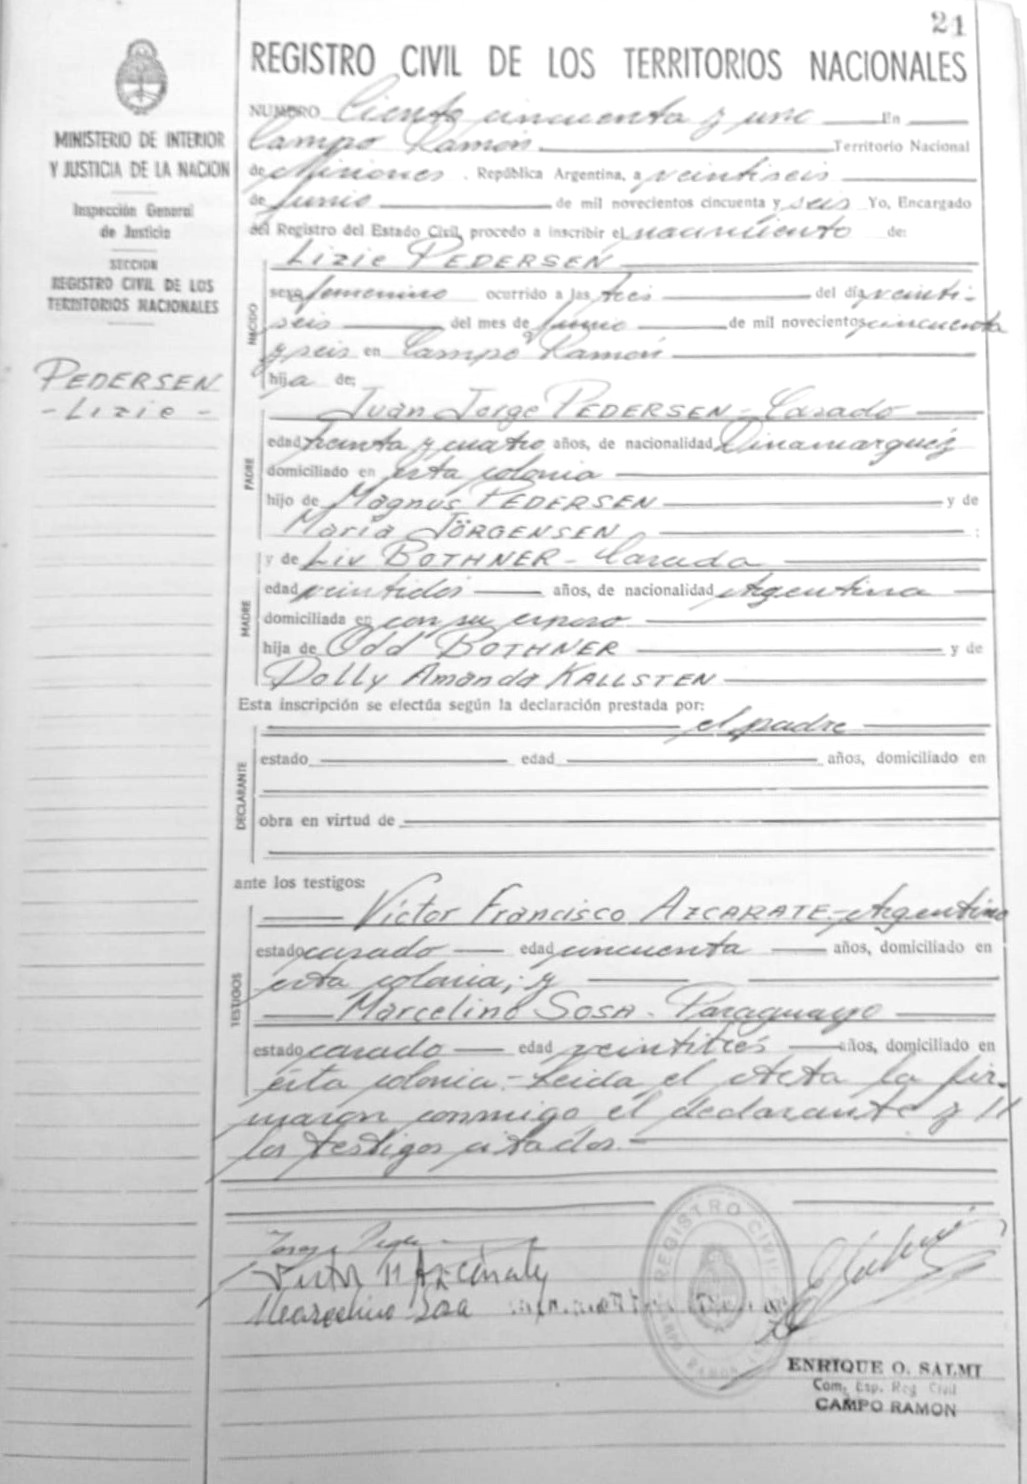 21
REGISTRO CIVIL DE LOS TERRITORIOS NACIONALES
MINISTERIO DE INTERIOR
Y JUSTICIA DE LA NACION
Inspección General
de Justicia
SECCION
REGISTRO CIVIL DE LOS
TERRITORIOS NACIONALES
PEDERSEN
- Lizie -
NUMERO Ciento cincuenta y uno En
Campo Ramón Territorio Nacional
de Misiones. República Argentina, a veintiseis
de Junio de mil novecientos cincuenta y seis Yo, Encargado
del Registro del Estado Civil, procedo a inscribir el nacimiento de:
Lizie PEDERSEN
NACIDO
sexo femenino ocurrido a las tres del día veinti-
seis del mes de Junio de mil novecientos cincuenta
y seis en Campo Ramón
hija de;
Juan Jorge PEDERSEN - Casado
PADRE
edad treinta y cuatro años, de nacionalidad Dinamarqués
domiciliado en esta colonia
hijo de Magnus PEDERSEN y de
María JÖRGENSEN ;
y de Liv BOTHNER - Casada
MADRE
edad veintidos años, de nacionalidad Argentina
domiciliada en con su esposo
hija de Odd BOTHNER y de
Dolly Amanda KALLSTEN
Esta inscripción se efectúa según la declaración prestada por:
el padre
DECLARANTE
estado edad años, domiciliado en
obra en virtud de
ante los testigos:
Víctor Francisco AZCARATE - Argentino
TESTIGOS
estado casado edad cincuenta años, domiciliado en
esta colonia; y
Marcelino SOSA - Paraguayo
estado casado edad veintitres años, domiciliado en
ésta colonia - Leida el Acta la fir-
maron conmigo el declarante y
los testigos citados.
Azcarate
Marcelino Sosa
REGISTRO CIVIL
CAMPO RAMON
ENRIQUE O. SALMI
Com. Esp. Reg Civil
CAMPO RAMON